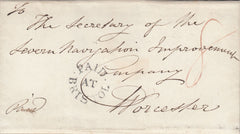 To
The Secretary of the
Severn Navigation Improvement
Company
Worcester
Paid
PAID
AT
BRISTOL